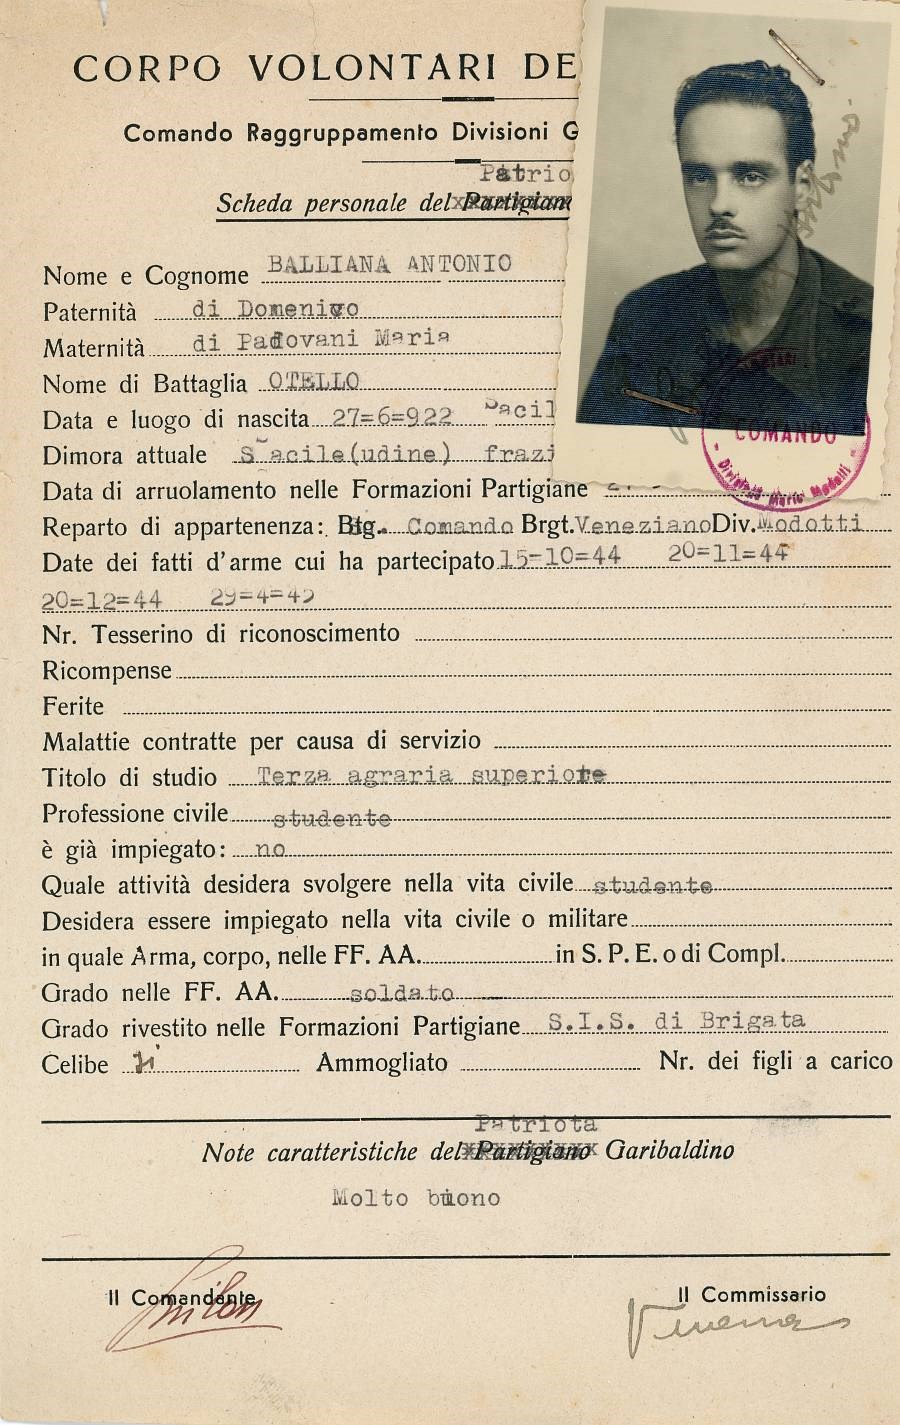 CORPO VOLONTARI DE
Comando Raggruppamento Divisioni G
Patrio
Scheda personale del Partigiano
Nome e Cognome BALLIANA ANTONIO
Paternità di Domenivo
Maternità di Padovani Maria
Nome di Battaglia OTELLO
Data e luogo di nascita 27=6=922 Sacil
Dimora attuale Sacile(udine) frazi
Data di arruolamento nelle Formazioni Partigiane
Reparto di appartenenza: Btg. Comando Brgt. Veneziano Div. Modotti
Date dei fatti d'arme cui ha partecipato 15=10=44 20=11=44
20=12=44 29=4=45
Nr. Tesserino di riconoscimento
Ricompense
Ferite
Malattie contratte per causa di servizio
Titolo di studio Terza agraria superiore
Professione civile studente
è già impiegato: no
Quale attività desidera svolgere nella vita civile studente
Desidera essere impiegato nella vita civile o militare
in quale Arma, corpo, nelle FF. AA. in S. P. E. o di Compl.
Grado nelle FF. AA. soldato
Grado rivestito nelle Formazioni Partigiane S.I.S. di Brigata
Celibe si Ammogliato Nr. dei figli a carico
Patriota
Note caratteristiche del Partigiano Garibaldino
Molto buono
Il Comandante Il Commissario
COMANDO